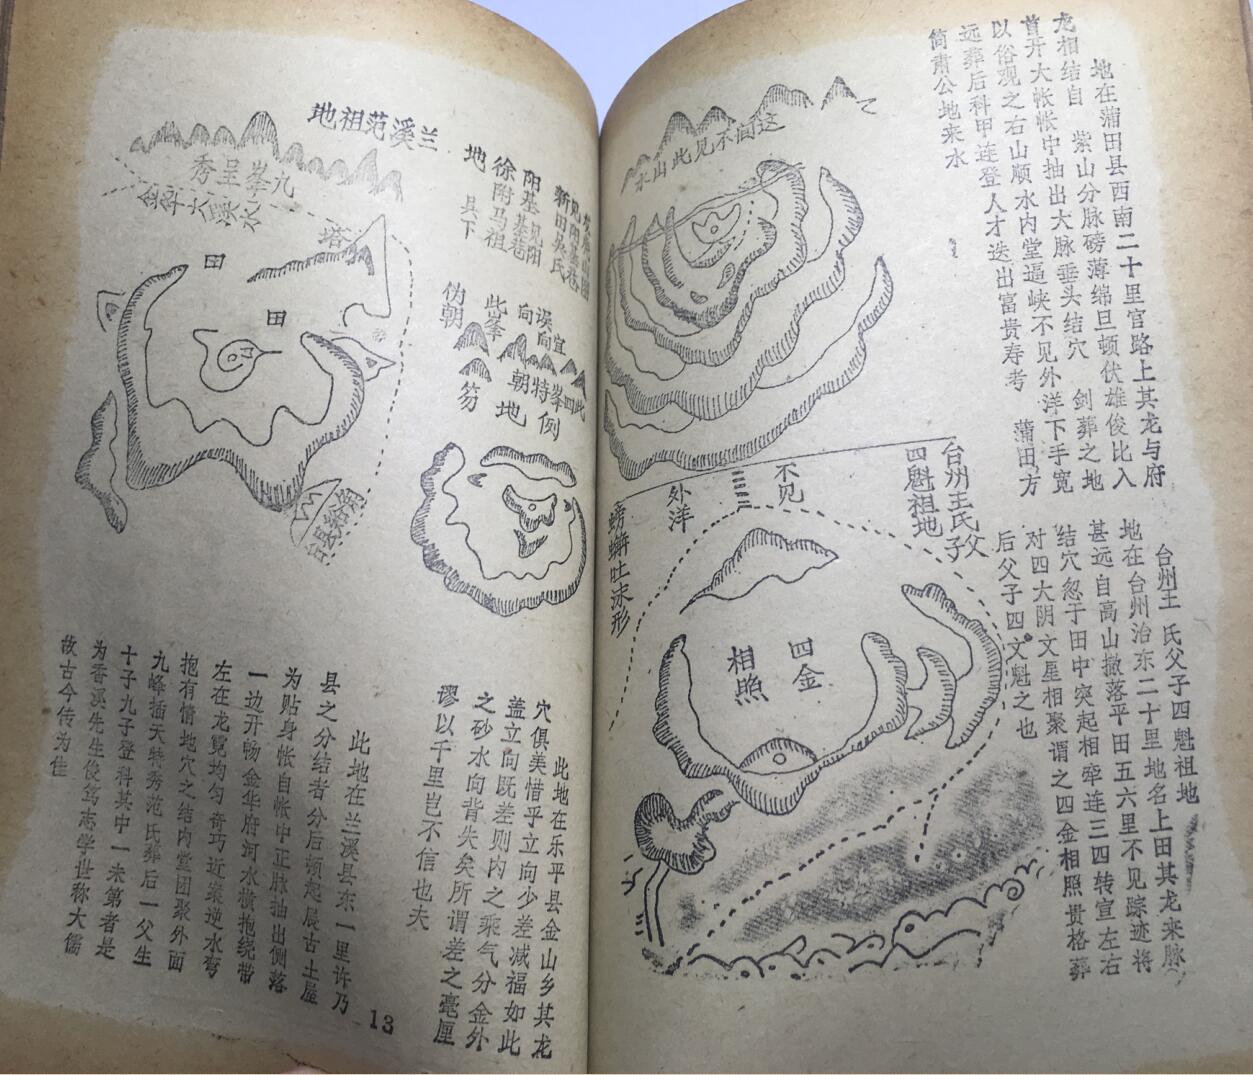 地在蒲田县西南二十里官路上其龙与府
龙相结自 紫山分脉磅薄绵旦顿伏雄俊比入
首开大帐帐中抽出大脉垂头结穴 剑葬之地
以俗观之右山顺水内堂逼峡不见外洋下手宽
远葬后科甲连登人才迭出富贵寿考 蒲田方
简肃公地来水
这间不见此山水
台州王氏父子
四魁祖地
不见
外洋
螃蟹吐沫形
四金
相照
台州王 氏父子四魁祖地
地在台州治东二十里地名上田其龙来脉
甚远自高山撒落平田五六里不见踪迹将
结穴忽于田中突起相牵连三四转宣左右
对四大阴文星相聚谓之四金相照贵格葬
后父子四文魁之也
阳基见阳
徐附马祖
地
其下
误宜
向向
此峯
伪朝
此四峯特朝
例
地
笏
兰溪范祖地
九峯呈秀
金华大溪水
塔
田
田
此地在乐平县金山乡其龙
穴俱美惜乎立向少差减福如此
盖立向既差则内之乘气分金外
之砂水向背失矣所谓差之毫厘
谬以千里岂不信也夫
此地在兰溪县东一里许乃
县之分结者分后顿起辰古土屋
为贴身帐自帐中正脉抽出侧落
一边开畅金华府河水横抱绕带
左在龙竟均匀奇巧近案逆水弯
抱有情地穴之结内堂团聚外面
九峰插天特秀范氏葬后一父生
十子九子登科其中一未第者是
为香溪先生俊笃志学世称大儒
故古今传为佳
13